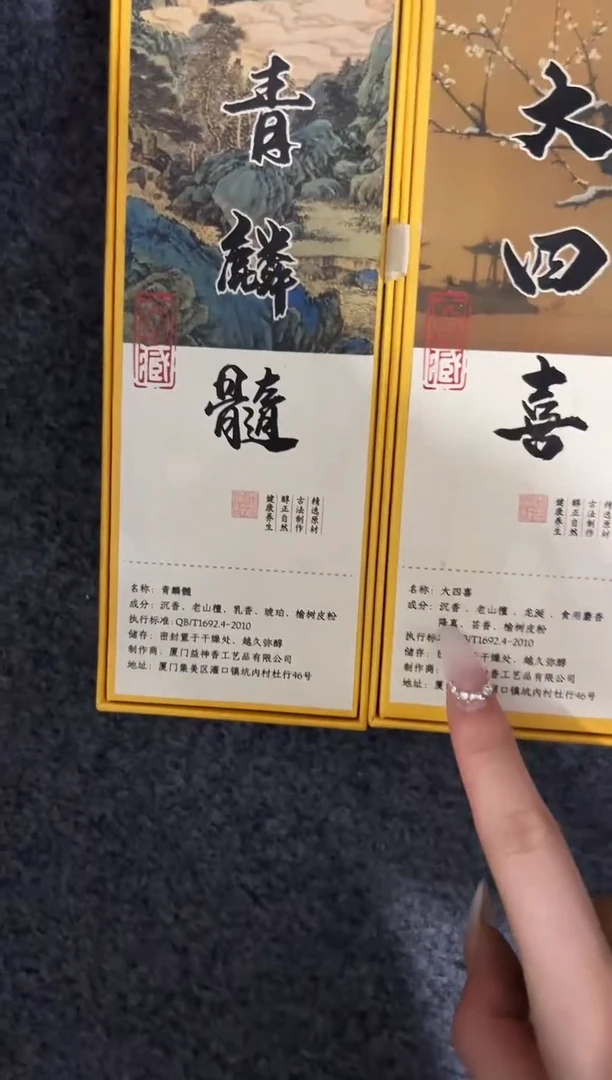 青麟髓
精选原材
古法制作
醇正自然
健康养生
名称：青麟髓
成分：沉香、老山檀、乳香、琥珀、榆树皮粉
执行标准：QB/T1692.4-2010
储存：密封置于干燥处、越久弥醇
制作商：厦门益神香工艺品有限公司
地址：厦门集美区灌口镇坑内村杜行46号
大四喜
古法制作
醇正自然
健康养生
名称：大四喜
成分：沉香、老山檀、龙涎、食用麝香
降真、芸香、榆树皮粉
执行标 /T1692.4-2010
储存： 封置于干燥处、越久弥醇
制作商： 香工艺品有限公司
地址： 灌口镇坑内村杜行46号